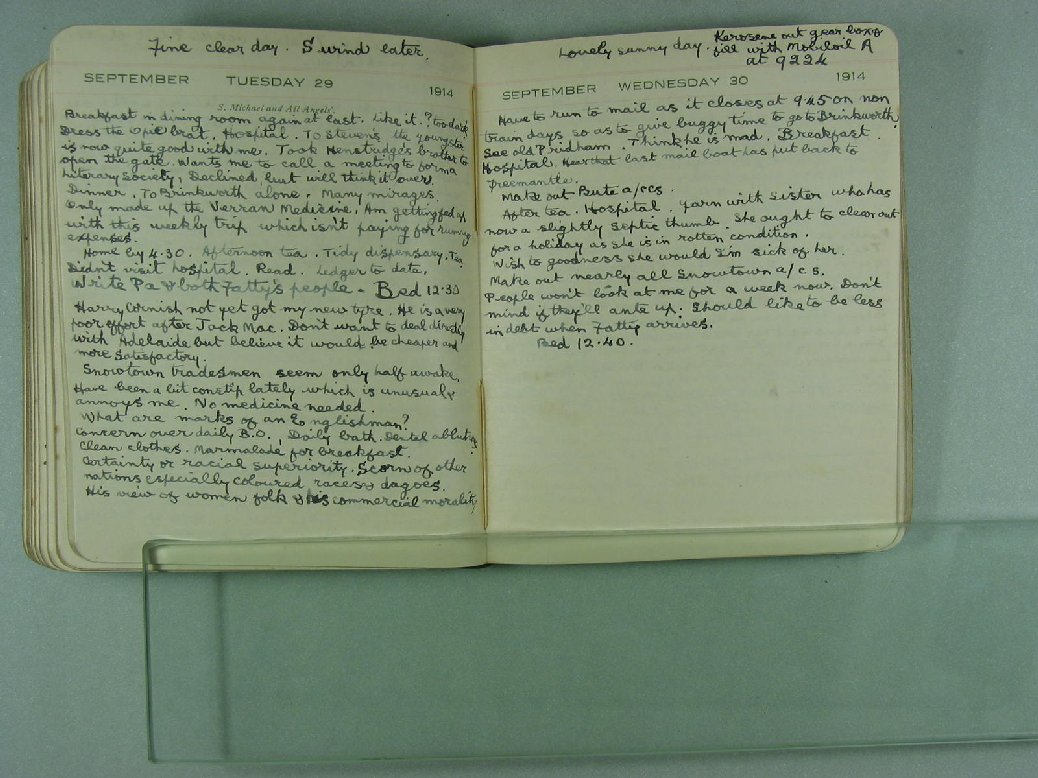 Fine clear day. S wind later.
SEPTEMBER TUESDAY 29 1914
S. Michael and All Angels'.
Breakfast in dining room again at last. Like it. ? too dark
Dress the Opie brat. Hospital. To Stevens the youngster
is now quite good with me. Took Henstridge's brother to
open the gate. Wants me to call a meeting to form a
Literary Society, Declined, but will think it over.
Dinner. To Brinkworth alone. Many mirages.
Only made up the Verran Medicine. Am getting fed up
with this weekly trip which isn't paying for running
expenses.
Home by 4.30. Afternoon tea. Tidy dispensary. Tea
Didn't visit hospital. Read. Ledger to date.
Write Pa & both Fatty's people - Bed 12.30
Harry Cornish not yet got my new tyre. He is a very
poor effort after Jack Mac. Don't want to deal directly
with Adelaide but believe it would be cheaper and
more satisfactory.
Snowtown tradesmen seem only half awake.
Have been a bit constip lately which is unusual &
annoys me. No medicine needed.
What are marks of an Englishman?
Concern over daily B.O. Daily bath. Dental ablutions
Clean clothes. Marmalade for breakfast.
Certainty of racial superiority. Scorn of other
nations especially coloured races & dagoes.
His view of women folk & his commercial morality
Lovely sunny day. Kerosene out gear box &
fill with Mobiloil A
at 9224
SEPTEMBER WEDNESDAY 30 1914
Have to run to mail as it closes at 9.45 on non
train days so as to give buggy time to go to Brinkworth
See old Pridham. Think he is mad. Breakfast.
Hospital. Hear that last mail boat has put back to
Freemantle.
Make out Bute a/ccs.
After tea. Hospital. Yarn with Sister who has
now a slightly septic thumb. She ought to clear out
for a holiday as she is in rotten condition.
Wish to goodness she would I'm sick of her.
Make out nearly all Snowtown a/cs.
People won't look at me for a week now. Don't
mind if they'll ante up. Should like to be less
in debt when Fatty arrives.
Bed 12.40.